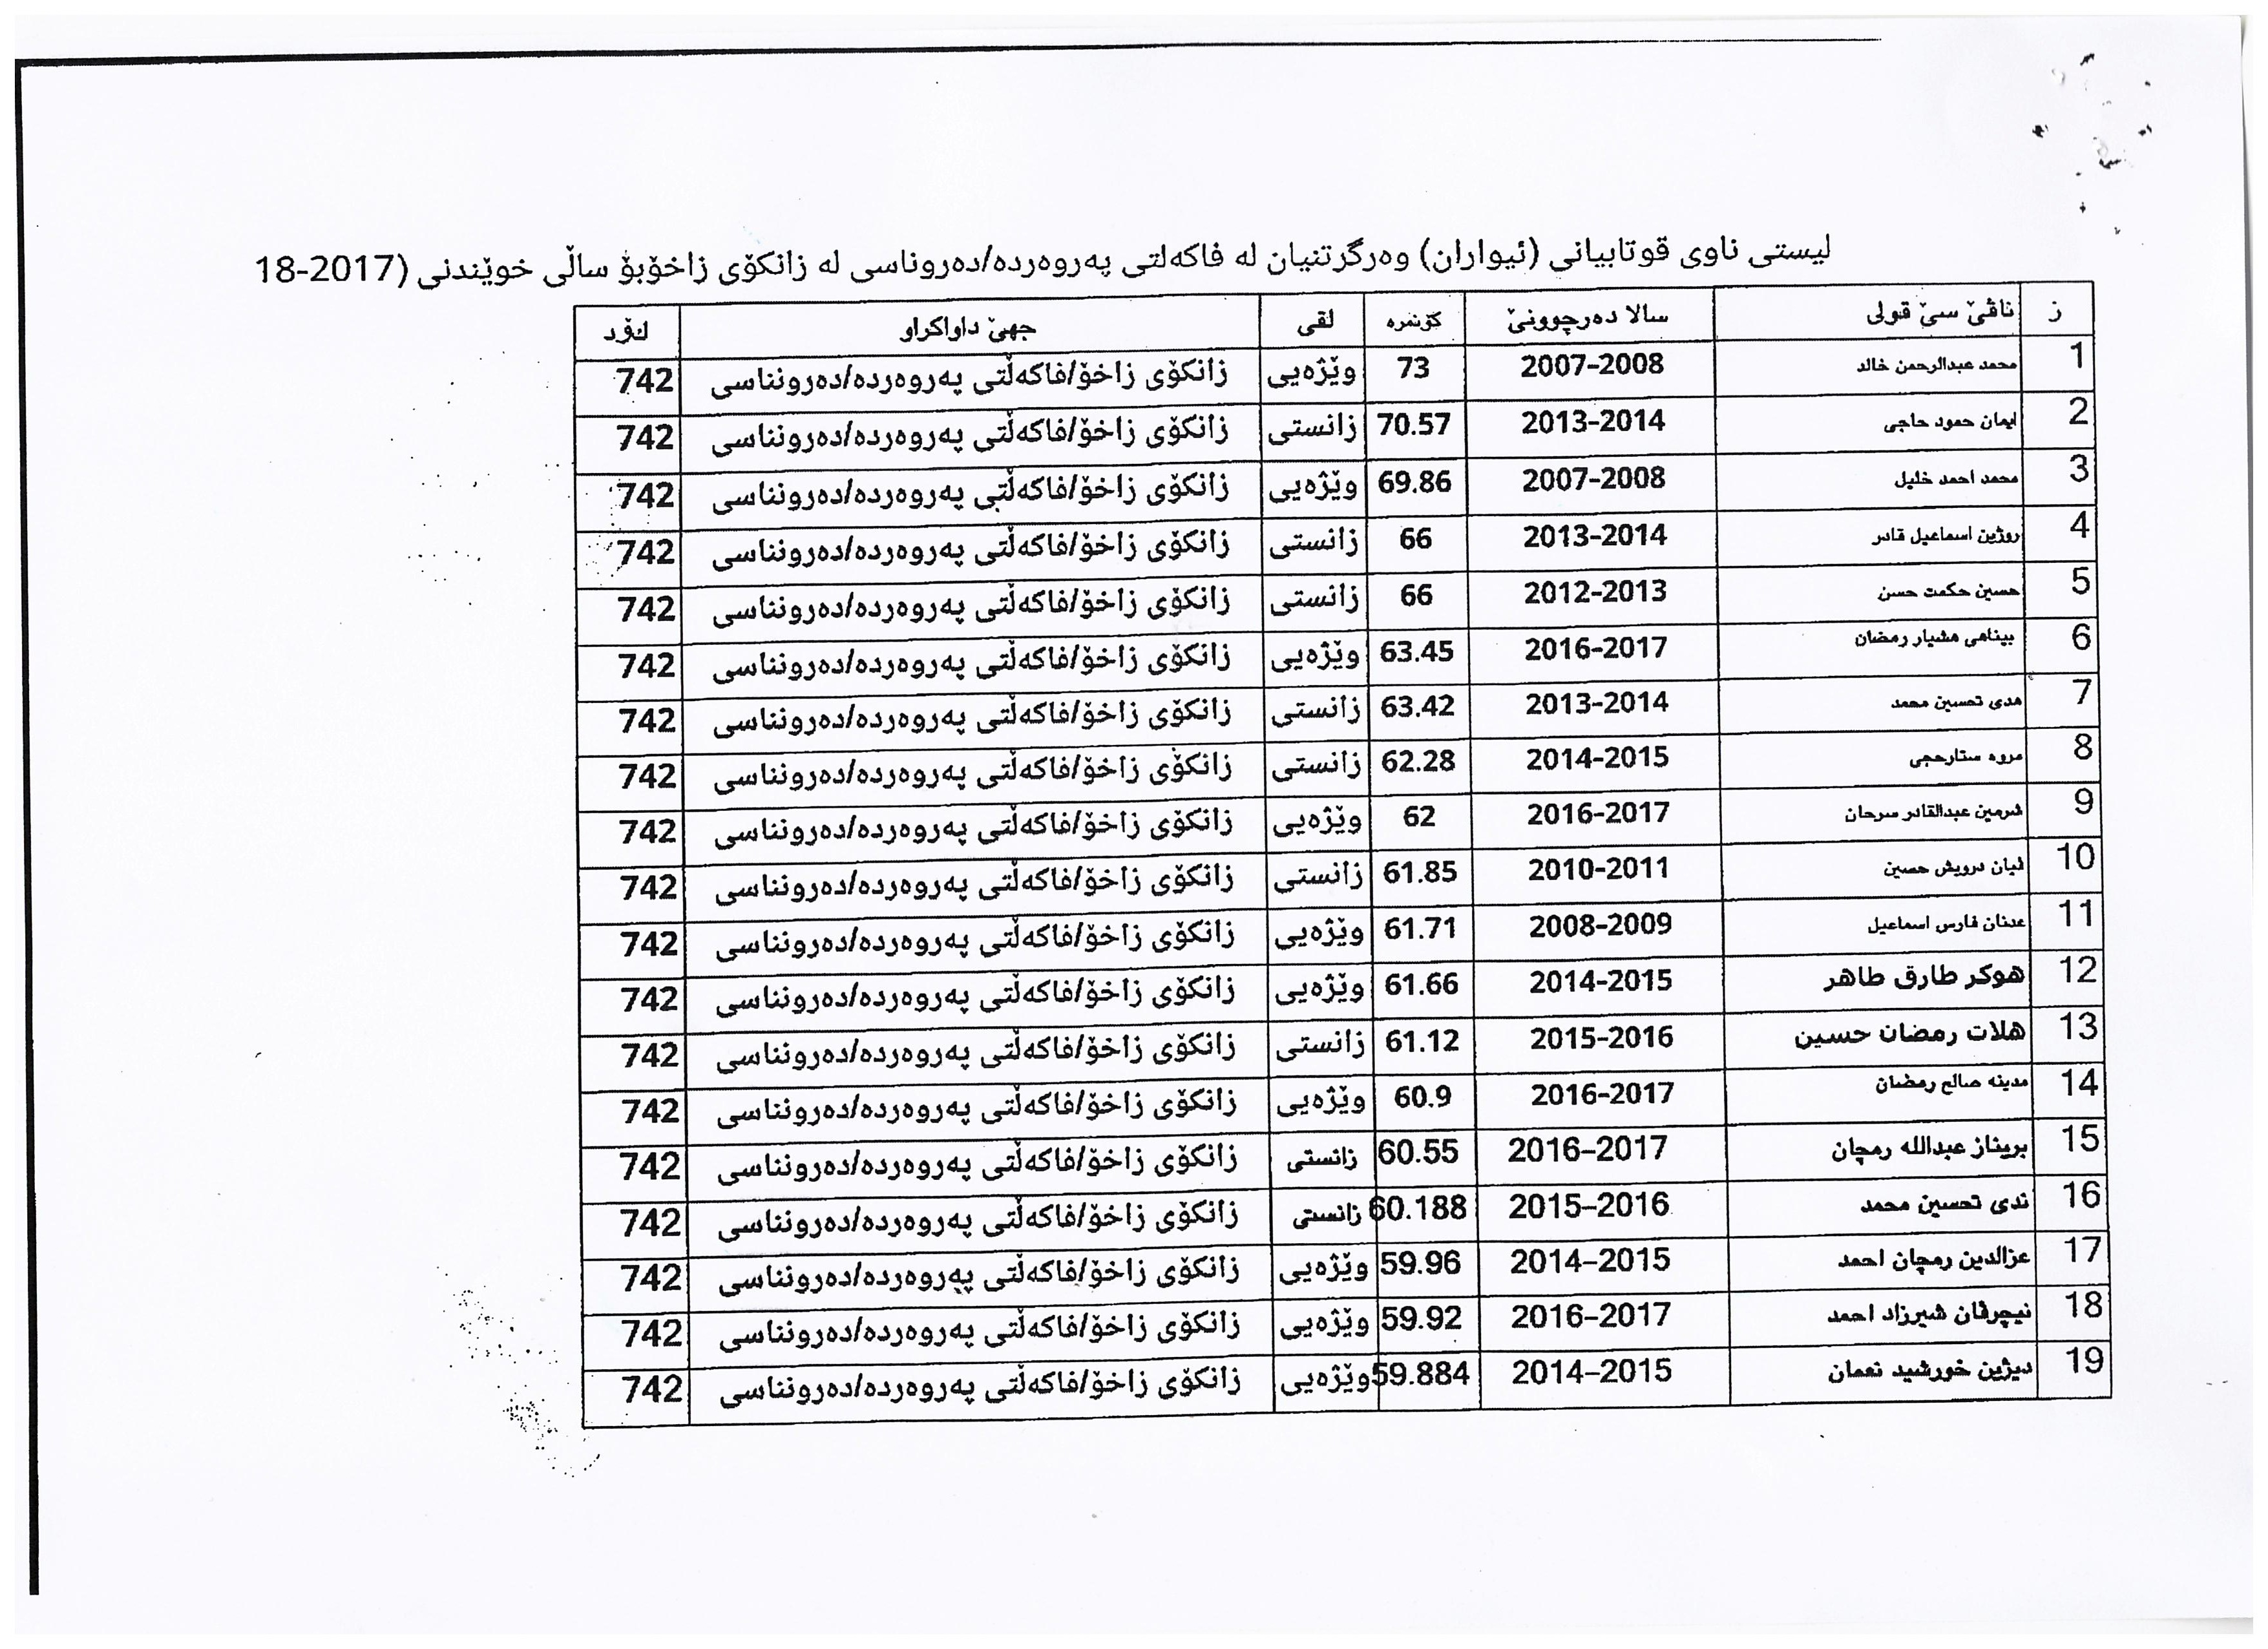 لیستی ناوی قوتابیانی (ئیواران) وەرگرتنیان لە فاکەلتی پەروەردە/دەروناسی لە زانکۆی زاخۆبۆ ساڵی خوێندنی (2017-18
ز ناڤێ سێ قولی سالا دەرچوونێ کۆنمرە لقی جهێ داواکراو کۆد
1 محمد عبدالرحمن خالد 2007-2008 73 وێژەیی زانکۆی زاخۆ/فاکەڵتی پەروەردە/دەرونناسی 742
2 ایمان حمود حاجی 2013-2014 70.57 زانستی زانکۆی زاخۆ/فاکەڵتی پەروەردە/دەرونناسی 742
3 محمد احمد خلیل 2007-2008 69.86 وێژەیی زانکۆی زاخۆ/فاکەڵتی پەروەردە/دەرونناسی 742
4 روژین اسماعیل قادر 2013-2014 66 زانستی زانکۆی زاخۆ/فاکەڵتی پەروەردە/دەرونناسی 742
5 حسین حکمت حسن 2012-2013 66 زانستی زانکۆی زاخۆ/فاکەڵتی پەروەردە/دەرونناسی 742
6 بیناهی هشیار رمضان 2016-2017 63.45 وێژەیی زانکۆی زاخۆ/فاکەڵتی پەروەردە/دەرونناسی 742
7 هدی تحسین محمد 2013-2014 63.42 زانستی زانکۆی زاخۆ/فاکەڵتی پەروەردە/دەرونناسی 742
8 مروه ستارحجی 2014-2015 62.28 زانستی زانکۆی زاخۆ/فاکەڵتی پەروەردە/دەرونناسی 742
9 شرمین عبدالقادر سرحان 2016-2017 62 وێژەیی زانکۆی زاخۆ/فاکەڵتی پەروەردە/دەرونناسی 742
10 ڤیان درویش حسین 2010-2011 61.85 زانستی زانکۆی زاخۆ/فاکەڵتی پەروەردە/دەرونناسی 742
11 عدنان فارس اسماعیل 2008-2009 61.71 وێژەیی زانکۆی زاخۆ/فاکەڵتی پەروەردە/دەرونناسی 742
12 هوکر طارق طاهر 2014-2015 61.66 وێژەیی زانکۆی زاخۆ/فاکەڵتی پەروەردە/دەرونناسی 742
13 هلات رمضان حسین 2015-2016 61.12 زانستی زانکۆی زاخۆ/فاکەڵتی پەروەردە/دەرونناسی 742
14 مدینه صالح رمضان 2016-2017 60.9 وێژەیی زانکۆی زاخۆ/فاکەڵتی پەروەردە/دەرونناسی 742
15 بریناز عبدالله رمچان 2016-2017 60.55 زانستی زانکۆی زاخۆ/فاکەڵتی پەروەردە/دەرونناسی 742
16 ندی تحسین محمد 2015-2016 60.188 زانستی زانکۆی زاخۆ/فاکەڵتی پەروەردە/دەرونناسی 742
17 عزالدین رمچان احمد 2014-2015 59.96 وێژەیی زانکۆی زاخۆ/فاکەڵتی پەروەردە/دەرونناسی 742
18 نیچرڤان شیرزاد احمد 2016-2017 59.92 وێژەیی زانکۆی زاخۆ/فاکەڵتی پەروەردە/دەرونناسی 742
19 دیژین خورشید نعمان 2014-2015 59.884 وێژەیی زانکۆی زاخۆ/فاکەڵتی پەروەردە/دەرونناسی 742